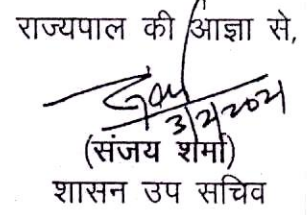 राज्यपाल की आज्ञा से,
3/2/2021
(संजय शर्मा)
शासन उप सचिव